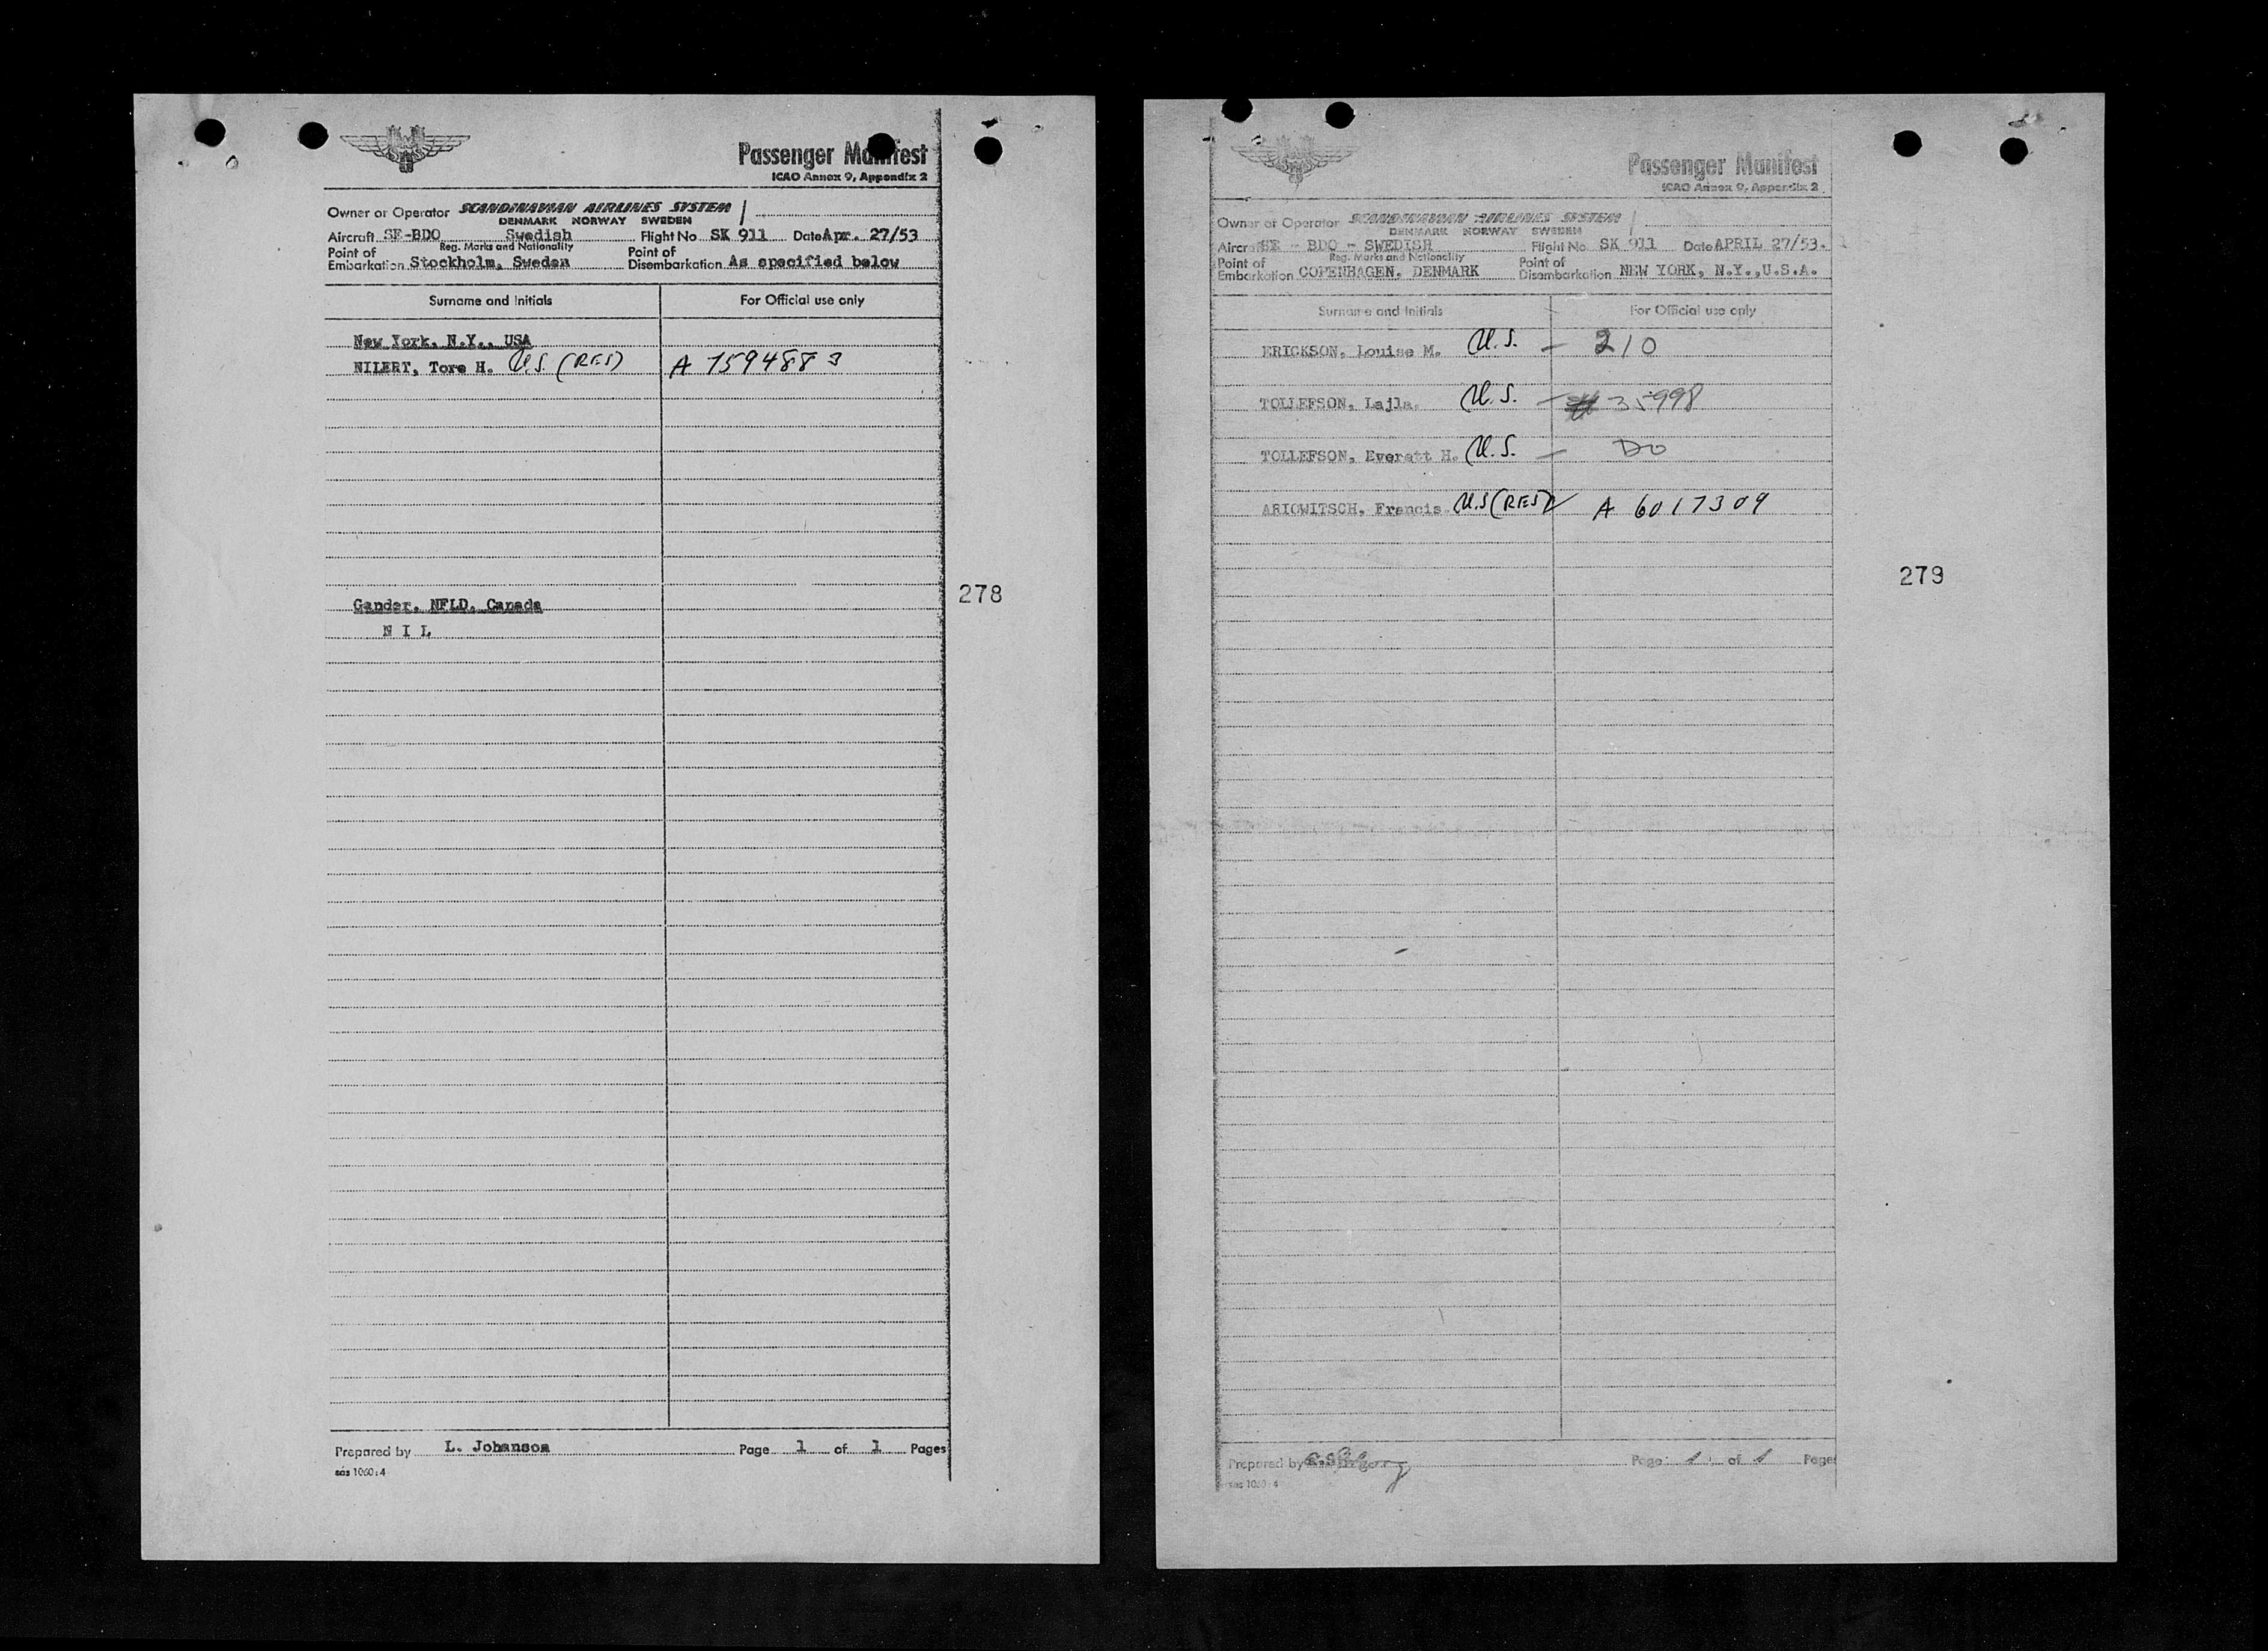 Passenger Manifest
ICAO Annex 9, Appendix 2
Owner or Operator SCANDINAVIAN AIRLINES SYSTEM /
DENMARK NORWAY SWEDEN
Aircraft SE-BDO Swedish Flight No SK 911 Date Apr. 27/53
Reg. Marks and Nationality
Point of Embarkation Stockholm, Sweden Point of Disembarkation As specified below
Surname and Initials For Official use only
New York, N.Y., USA
NILERT, Tore H. U.S. (RES) A 7594883
278
Gander, NFLD, Canada
N I L
Prepared by L. Johanson Page 1 of 1 Pages
sas 1060:4
Passenger Manifest
ICAO Annex 9, Appendix 2
Owner or Operator SCANDINAVIAN AIRLINES SYSTEM /
DENMARK NORWAY SWEDEN
Aircraft SE - BDO - SWEDISH Flight No SK 911 Date APRIL 27/53.
Reg. Marks and Nationality
Point of Embarkation COPENHAGEN, DENMARK Point of Disembarkation NEW YORK, N.Y.,U.S.A.
Surname and Initials For Official use only
ERICKSON, Louise M. U.S. — 210
TOLLEFSON, Lajla. U.S. — 35998
TOLLEFSON, Everett H. U.S. — DO
ARIOWITSCH, Francis. U.S (RES) A 6017309
279
Prepared by Page 1 of 1 Pages
sas 1060:4